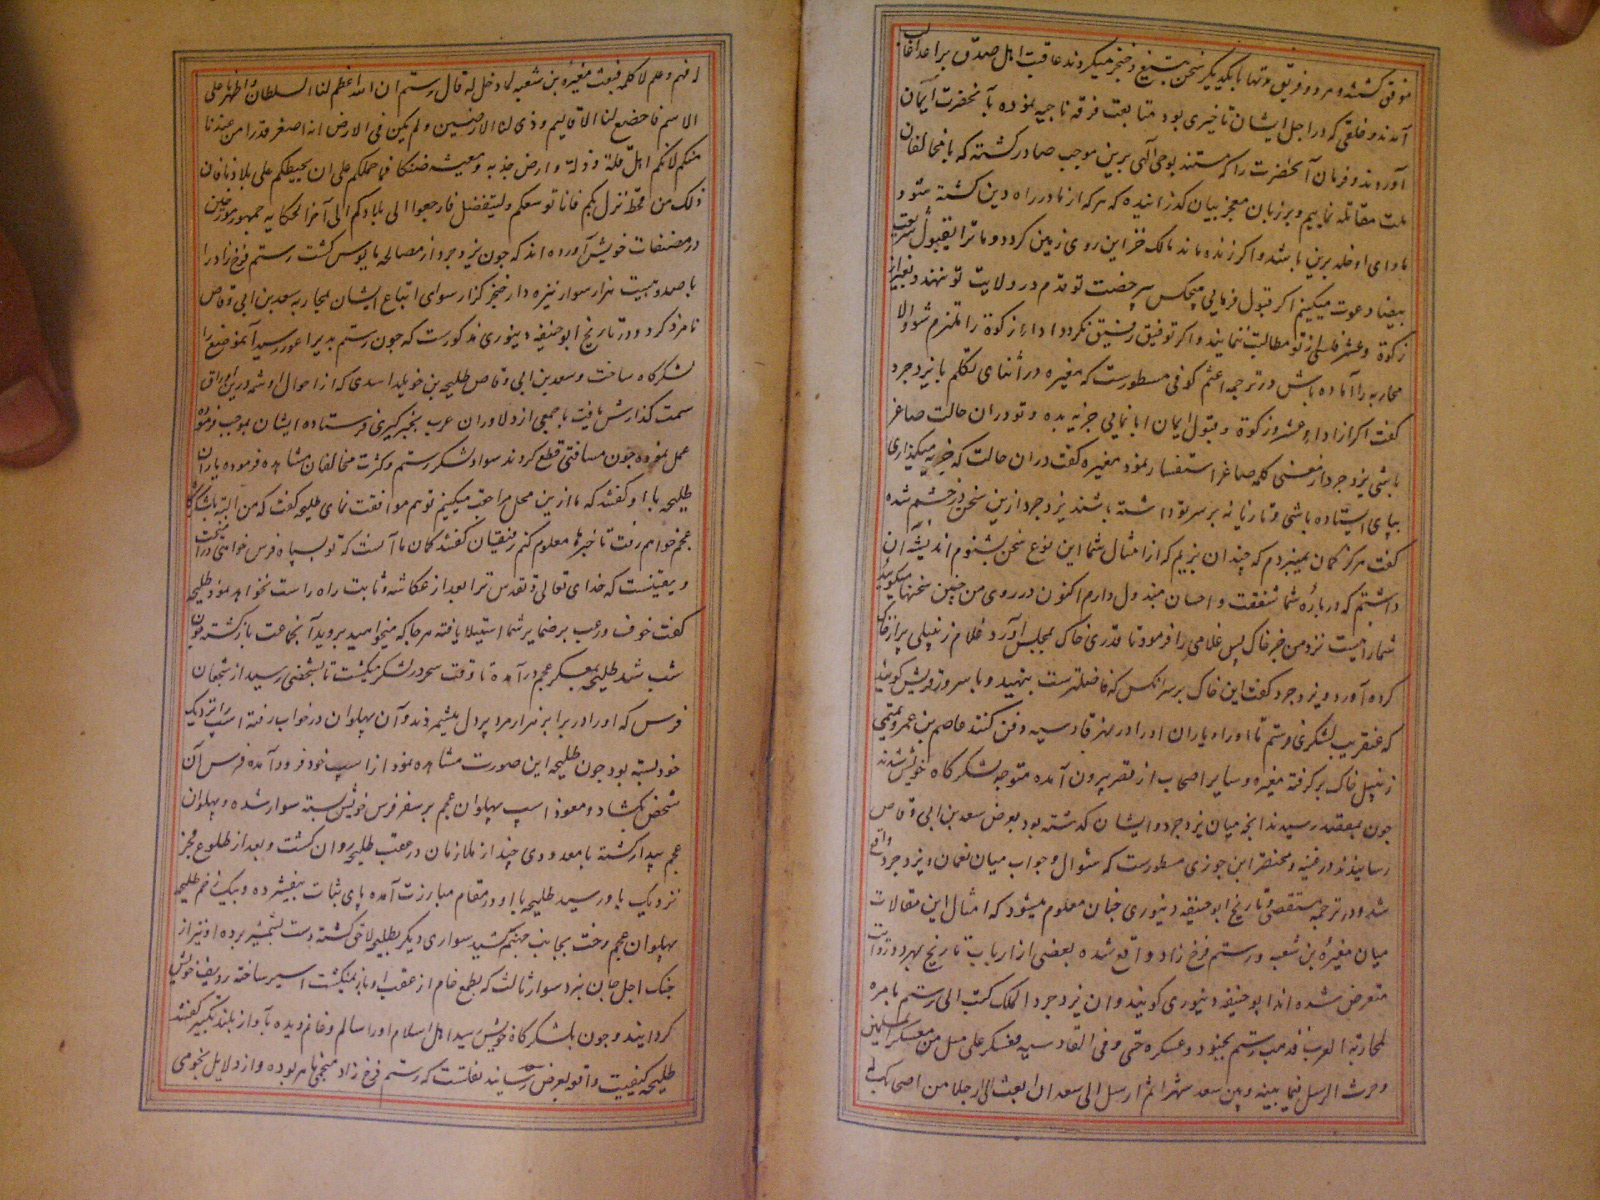 موفق کشتند و هر دو فریق مدتها با یکدیگر سخن بتیغ و خنجر میکردند عاقبت اهل صدق بر اعدا غالب
آمدند و خلقی که در اجل ایشان تاخیری بود متابعت فرقه ناجیه نموده بآنحضرت ایمان
آوردند و فرمان آنحضرت را که مستند بوحی الهی برین موجب صادر کشته که با مخالفان
ملت مقاتله نماییم و بر زبان معجز بیان کذرانیده که هر که از ما در راه دین کشته شود
ماوای او خلد برین باشد و اکر زنده ماند مالک خزاین روی زمین کردد و ما ترا بقبول شریعت
بیضا دعوت میکنیم اکر قبول فرمایی هیچکس بی رخصت تو قدم در ولایت تو ننهد و بغیر از
زکوة و عشر فلسی از تو مطالبت ننمایند و اکر توفیق رفیق نکردد اداء زکوة را ملتزم شو والا
محاربه را آماده باش در ترجمه اعثم کوفی مسطورست که مغیره در اثنای تکلم با یزدجرد
کفت اکر از اداء عشر و زکوة و قبول ایمان ابا نمایی جزیه بده و تو در ان حالت صاغر
باشی یزدجرد از معنی کلمه صاغر استفسار نمود مغیره کفت در ان حالت که جزیه میکذاری
بپای ایستاده باشی و تازیانه بر سر تو داشته باشند یزدجرد ازین سخن در خشم شده
کفت هرکز کمان نمیبردم که چندان بزییم که از امثال شما این نوع سخن بشنوم اندیشه آن
داشتم که در باره شما شفقت و احسان مبذول دارم اکنون در روی من چنین سخنها میکویید
شما را نیست نزد من جز خاک پس غلامی را فرمود تا قدری خاک بمجلس آورد غلام زنبیلی پر از خاک
کرده آورد و یزدجرد کفت این خاک بر سر انکس که فاضلترست بنهید و با سرور خویش کویید
که عنقریب لشکری فرستم تا او را و یاران او را در نهر قادسیه دفن کنند عاصم بن عمرو تمیمی
زنبیل خاک برکرفته مغیره و سایر اصحاب از قصر بیرون آمده متوجه لشکرکاه خویش شدند
چون بمقصد رسیدند انچه میان یزدجرد و ایشان کذشته بود بعرض سعد بن ابی وقاص
رسانیدند و در غنیه و مختصر ابن جوزی مسطورست که سئوال و جواب میان نعمان و یزدجرد واقع
شد و در ترجمه مستقصی و تاریخ ابوحنیفه دینوری چنان معلوم میشود که امثال این مقالات
میان مغیرة بن شعبه و رستم فرخ زاد واقع شده بعضی از ارباب تاریخ بهر دو روایت
متعرض شده اند ابوحنیفه دینوری کوید و ان یزدجرد الملک کتب الی رستم یامره
لمحاربة العرب فذهب رستم بجنوده و عسکره حتی وفی القادسیه فعسکر علی میل من معسکر المسلمین
وجرت الرسل فیما بینه و بین سعد شهرا ثم ارسل الی سعد ان ابعث الی رجلا من اصحابک
له فهم و علم لا کلمه فبعث مغیرة بن شعبه لما دخل له قال رستم ان الله اعظم لنا السلطان و اظهرنا علی
الامم فاخضع لنا الاقالیم و ذی لنا الارضین و لم یکن فی الارض امة اصغر قدرا من عندنا
منکم لانکم اهل قلة و ذلة و ارض جذبه و معیشه ضنکا فما حملکم علی ان یحیطکم علی بلادنا فان
ذلک من قحط نزل بکم فانا نوسعکم و لیتفضل فارجعوا الی بلادکم الی آخر الحکایه جمهور مورخین
در مصنفات خویش آورده اند که چون یزدجرد از مصالحه مایوس کشت رستم فرخ زاد را
با صد و بیست هزار سوار نیزه دار خنجر کزار سوای اتباع ایشان بمحاربه سعد بن ابی وقاص
نامزد کرد و در تاریخ ابوحنیفه دینوری مذکورست که چون رستم بدیر اعور رسید آنموضع را
لشکرکاه ساخت و سعد بن ابی وقاص طلیحه بن خویلد اسدی که از احوال او شمه درین اوراق
سمت کذارش یافت با جمعی از دلاوران عرب بخبرکیری فرستاده ایشان بموجب فرموده
عمل نموده چون مسافتی قطع کردند سواد لشکر رستم و کثرت مخالفان مشاهده فرموده یاران
طلیحه با او کفتند که ما ازین محل مراجعت میکنیم تو هم موافقت نمای طلیحه کفت که من البته بلشکرکاه
عجم خواهم رفت تا خبرها معلوم کنم رفیقان کفتند کمان ما آنست که تو بسپاه فرس خواهی درآمد
و یقینست که خدای تعالی و تقدس ترا بعد از عکاشه و ثابت راه راست نخواهد نمود طلیحه
کفت خوف و رعب بر ضمایر شما استیلا یافته هر جا که میخواهید بروید آنجماعت بازکشته چون
شب شد طلیحه بمعسکر عجم درآمده تا وقت سحر در لشکر میکشت تا بشخصی رسید از شجعان
فرس که او را در برابر هزار مرد پردل میشمردند و آن پهلوان در خواب رفته اسب را نزدیک
خود بسته بود چون طلیحه این صورت مشاهده نمود از اسپ خود فرود آمده فرس آن
شخص بکشاد و مقود اسپ پهلوان عجم بر سفر فرس خویش بسته سوار شده و پهلوان
عجم بیدار کشته با معدودی چند از ملازمان در عقب طلیحه روان کشت و بعد از طلوع فجر
نزدیک باو رسید طلیحه با او در مقام مبارزت آمده پای ثبات بیفشرده و بیک زخم طلیحه
پهلوان عجم رخت بجانب جهنم کشید سواری دیکر بطلیحه لاحق کشته دست بشمشیر برده او نیز از
چنک اجل جان نبرد سوار ثالث که بطمع خام از عقب او بازنمیکشت اسیر ساخته ردیف خویش
کردانیده و چون بلشکرکاه خویش رسید اهل اسلام او را سالم و غانم دیده بآواز بلند تکبیر کفتند
طلیحه کیفیت واقعه بعرض سعد رسانید نقلست که رستم فرخ زاد منجمی ماهر بوده و از دلایل نجومی